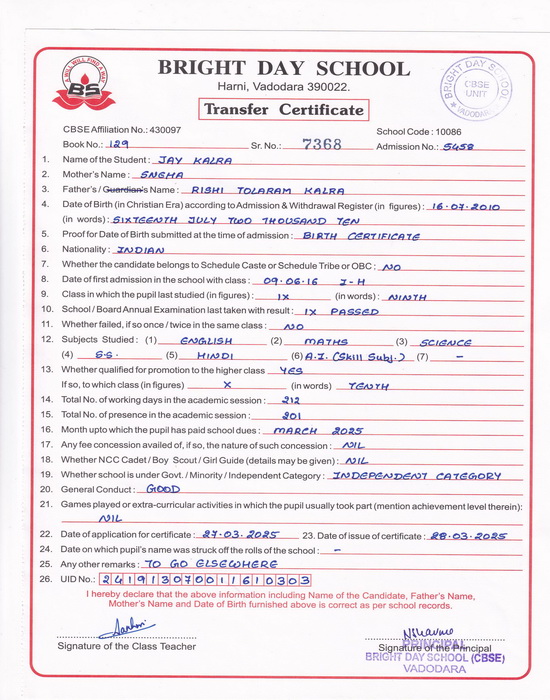 A WILL WILL FIND A WAY
BS
BRIGHT DAY SCHOOL
Harni, Vadodara 390022.
BRIGHT DAY SCHOOL
CBSE
UNIT
VADODARA
Transfer Certificate
CBSE Affiliation No.: 430097 School Code : 10086
Book No.: 129 Sr. No.: 7368 Admission No.: 5458
1. Name of the Student : JAY KALRA
2. Mother's Name : SNEHA
3. Father's / Guardian's Name : RISHI TOLARAM KALRA
4. Date of Birth (in Christian Era) according to Admission & Withdrawal Register (in figures) : 16.07.2010
(in words) : SIXTEENTH JULY TWO THOUSAND TEN
5. Proof for Date of Birth submitted at the time of admission : BIRTH CERTIFICATE
6. Nationality : INDIAN
7. Whether the candidate belongs to Schedule Caste or Schedule Tribe or OBC : NO
8. Date of first admission in the school with class : 09.06.16 I-H
9. Class in which the pupil last studied (in figures) : IX (in words) : NINTH
10. School / Board Annual Examination last taken with result : IX PASSED
11. Whether failed, if so once / twice in the same class : NO
12. Subjects Studied : (1) ENGLISH (2) MATHS (3) SCIENCE
(4) S.S. (5) HINDI (6) A.I. (Skill Subj.) (7) –
13. Whether qualified for promotion to the higher class YES
If so, to which class (in figures) X (in words) TENTH
14. Total No. of working days in the academic session : 212
15. Total No. of presence in the academic session : 201
16. Month upto which the pupil has paid school dues : MARCH 2025
17. Any fee concession availed of, if so, the nature of such concession : NIL
18. Whether NCC Cadet / Boy Scout / Girl Guide (details may be given) : NIL
19. Whether school is under Govt. / Minority / Independent Category : INDEPENDENT CATEGORY
20. General Conduct : GOOD
21. Games played or extra-curricular activities in which the pupil usually took part (mention achievement level therein):
NIL
22. Date of application for certificate : 27.03.2025 23. Date of issue of certificate : 28.03.2025
24. Date on which pupil's name was struck off the rolls of the school : –
25. Any other remarks : TO GO ELSEWHERE
26. UID No.: 241913070011610303
I hereby declare that the above information including Name of the Candidate, Father's Name,
Mother's Name and Date of Birth furnished above is correct as per school records.
Signature of the Class Teacher Signature of the Principal
PRINCIPAL
BRIGHT DAY SCHOOL (CBSE)
VADODARA